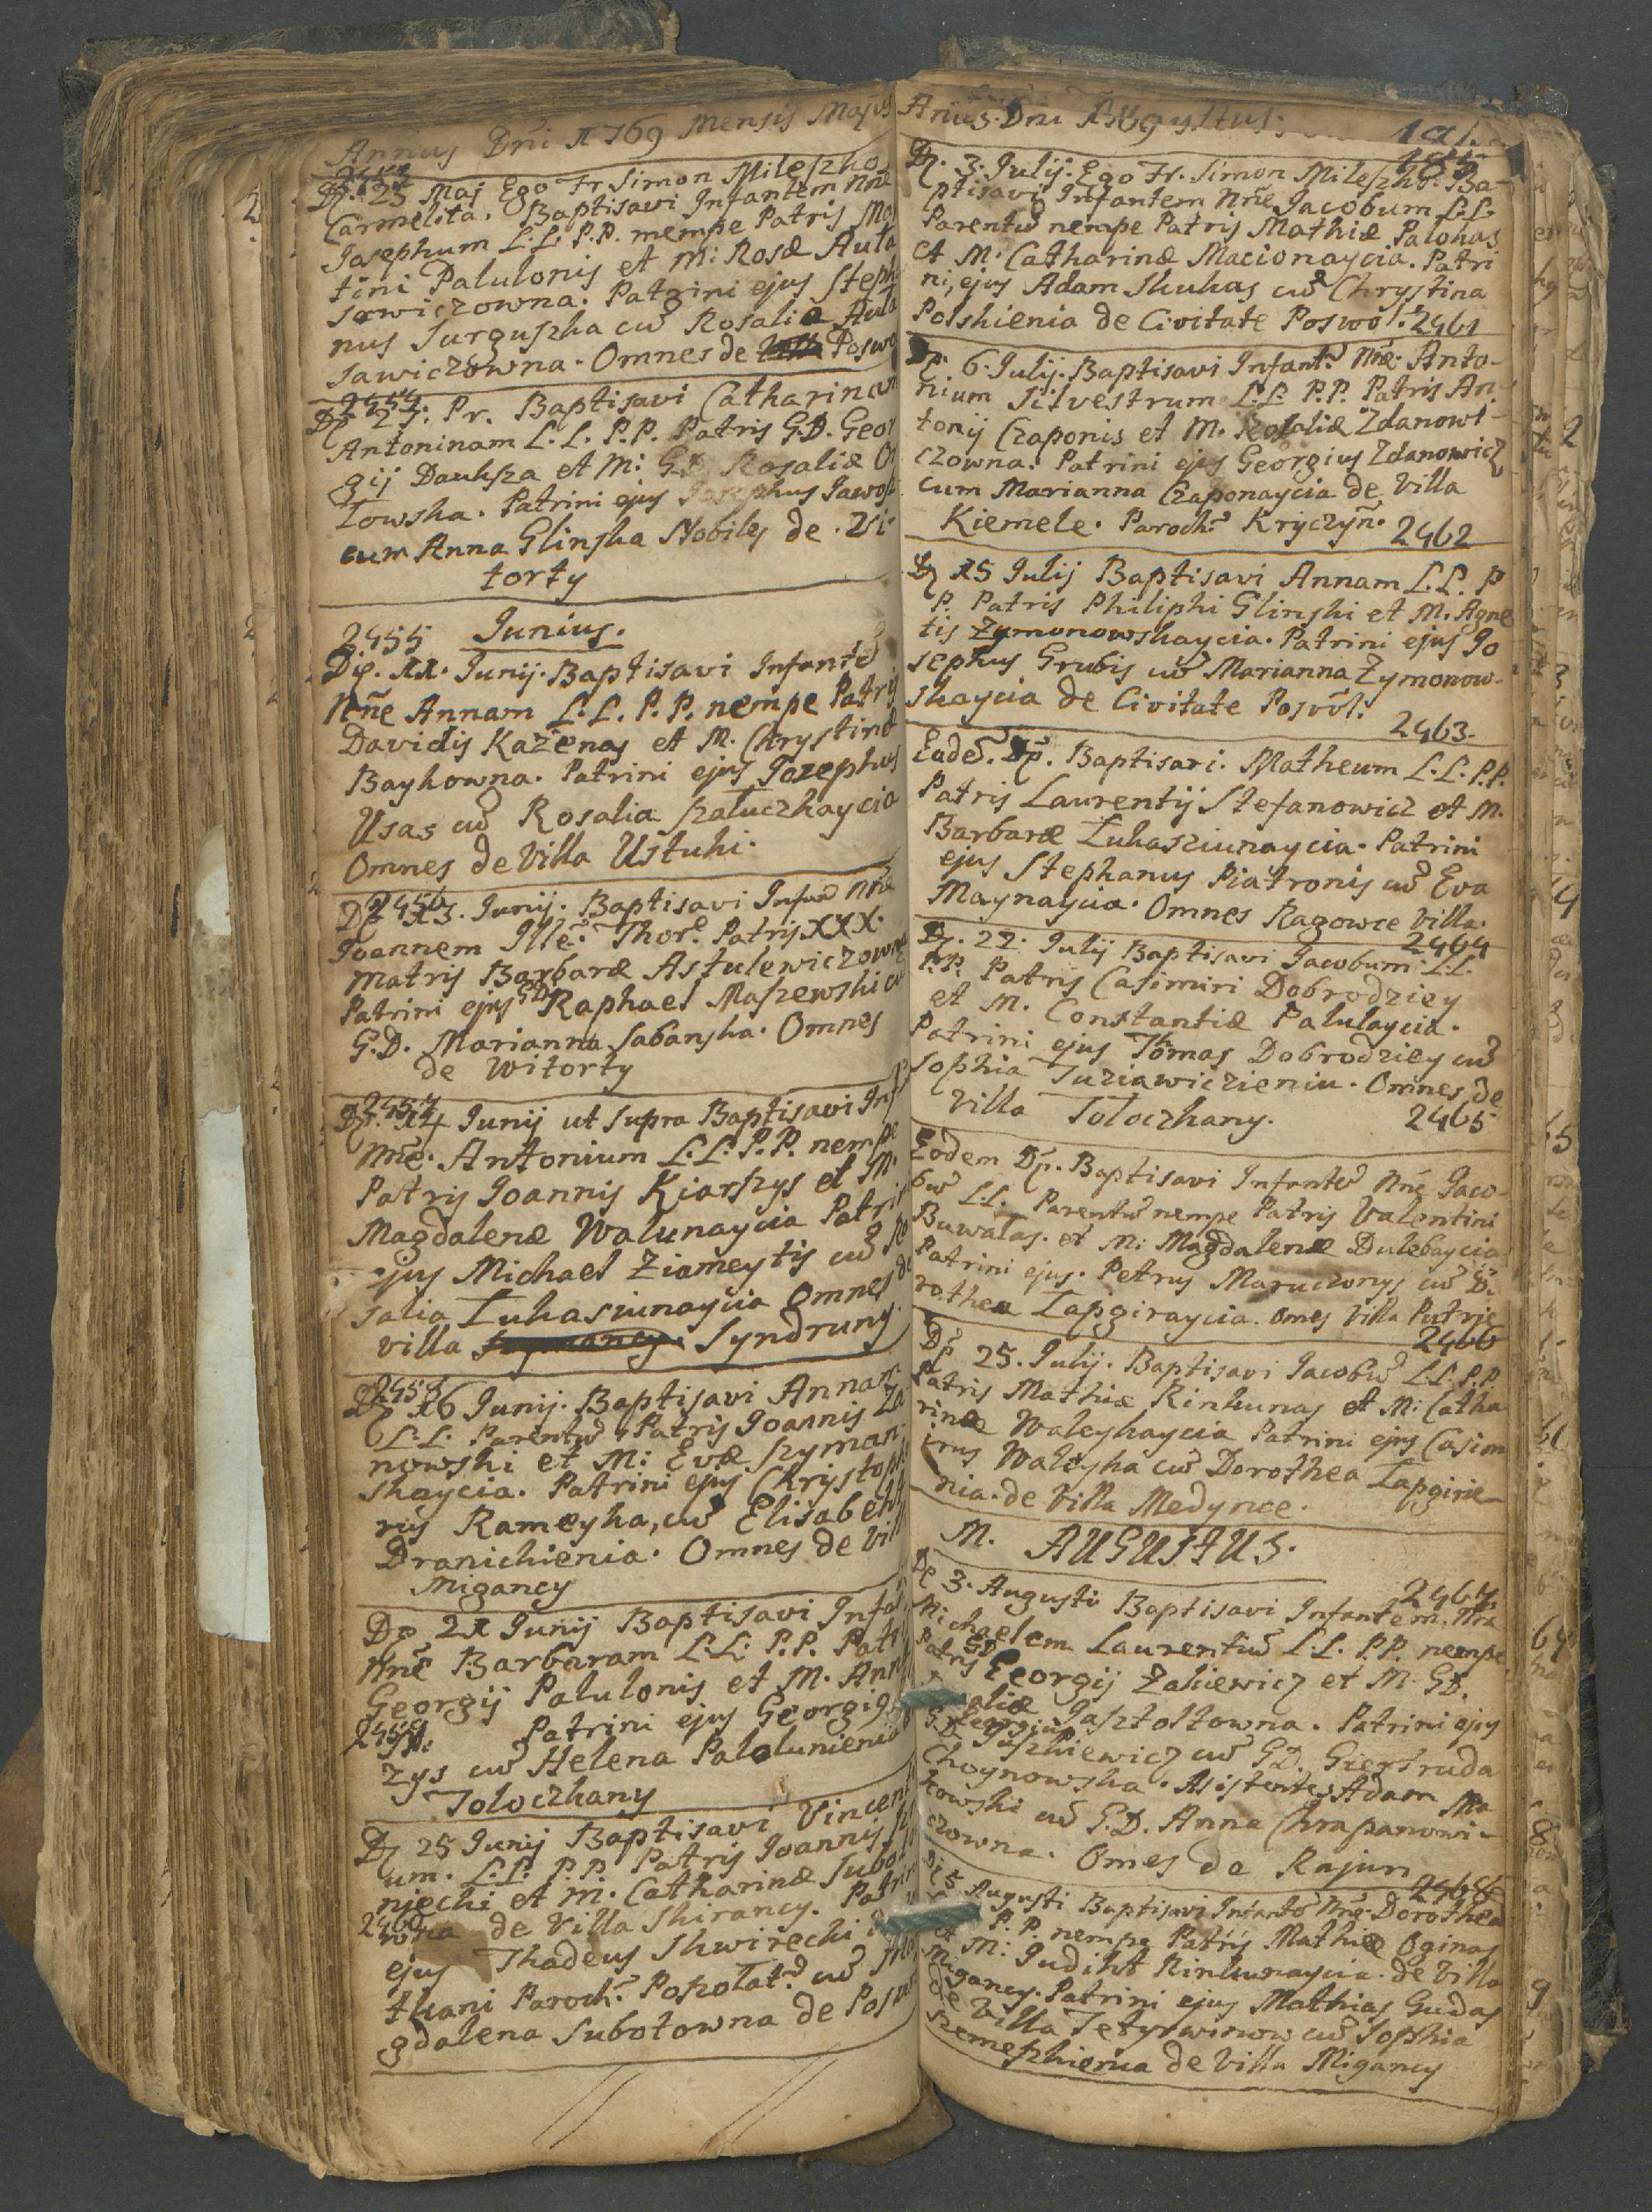 Annus Dni 1769 Mensis Majus
2453
Dp. 23 Maj Ego Fr. Simon Mileszko
Carmelita. Baptisavi Infantem Nñe
Josephum L.L. P.P. mempe Patris Mar
tini Palulonis et M: Rosæ Auta
sawiczowna. Patrini ejus Steph
nus Surguszka cū Rosalia Auta
sawiczowna. Omnes de Poswo
2454.
Dp 25. Pr. Baptisavi Catharinam
Antoninam L.L. P.P. Patris G.D. Geor
gij Dauksza et M: G.D. Rosaliæ
towska. Patrini ejus Josephus Jawo
cum Anna Glinska Nobiles de . Vi
torty
2455 Junius.
Dp. 11. Junij. Baptisavi Infantē
Nñe Annam L.L. P.P. nempe Patris
Davidis Każenas et M. Chrystinæ
Baykowna. Patrini ejus Jozephus
Usas cū Rosalia szatuczkaycia
Omnes de Villa Ustuki.
2456
Dp 13. Junij. Baptisavi Infan Nñe
Joannem Ille. Thor. Patris XXX.
Matris Barbaræ Astulewiczowna
Patrini ejus GD Raphael Maszewski cū
G.D. Marianna Sabanska. Omnes
de Witorty
2457
Dp. 14 Junij ut supra Baptisavi Inf
Nñe. Antonium L.L. P.P. nempe
Patris Joannis Kiarszys et M.
Magdalenæ Walunaycia Patrin
ejus Michael Ziameytis cū Ro
salia Łukasiunaycia Omnes de
villa Syndruny.
2458
Dp 16 Junij. Baptisavi Annam
L.L. Parentū Patris Joannis Za
nowski et M: Evæ szyman
skaycia. Patrini ejus Christoph
rus Rameyka, cū Elisabeth
Dranickienia. Omnes de Vill
Migancy
Dp 21 Junij Baptisavi Infan
Nñe Barbaram L.L. P.P. Patr
Georgij Palulonis et M. Ann
2459. Patrini ejus Georgi9
zys cū Helena Palulunienia
Toloczkany
Dp 25 Junij Baptisavi Vincent
um. L.L. P.P. Patris Joannis
niecki et M. Catharinæ Subot
2460 de Villa Skirancy. Patrin
ejus Thadeus Skwirecki
tkani Paroch. Popołat. cū Ma
gdalena Subotowna de Posz
Anus. Dni 1769 Julius.
191.
3. Julij. Ego Fr. Simon Mileszko. Ba-
ptisavi Infantem Nñe Jacobum L.L.
Parentū nempe Patris Mathiæ Palonas
et M. Catharinæ Macionaycia. Patri
ni, ejus Adam Skukas cū Chrystina
Polskienia de Civitate Poswol. 2461
Dp. 6. Julij. Baptisavi Infant. Nñe. Anto-
nium Silvestrum L.L. P.P. Patris An-
tonij Czaponis et M. Rosaliæ Zdanowi-
czowna. Patrini ejus Georgius Zdanowicz
cum Marianna Czaponaycia de Villa
Kiemele. Paroch. Kryczyn. 2462
Dp 15 Julij Baptisavi Annam L.L. P
P. Patris Philiphi Glinski et M. Agne
tis Zymonowskaycia. Patrini ejus Jo
sephus Grubis cū Marianna Zymonow-
skaycia de Civitate Poswol.
2463.
Eadē. Dp. Baptisavi. Matheum L.L. P.P.
Patris Laurentij Stefanowicz et M.
Barbaræ Łukasziunaycia. Patrini
ejus Stephanus Piatronis cū Eva
Maynaycia. Omnes Ragowce Villa.
2464
Dp. 22. Julij Baptisavi Jacobum L.L.
P.P. Patris Casimiri Dobrodziey
et M. Constantiæ Palulaycia.
Patrini ejus Thomas Dobrodziey cū
Sophia Tuziawiczieniu. Omnes de
Villa Toloczkany. 2465
Eodem Dp. Baptisavi Infantē Nñe Jaco-
bū L.L. Parentū nempe Patris Valentini
Buwałas. et M: Magdalenæ Dulebaycia
Patrini ejus. Petrus Maruczonys cū Do
rothea Łapgiraycia. omes Villa Putrie
2466
Dp 25. Julij. Baptisavi Jacobū L.L. P.P.
Patris Mathiæ Rinkunas et M: Catha
rinæ Waleykaycia Patrini ejus Casim
irus Waleyka cū Dorothea Łapgirie-
nia. de Villa Medynce.
M. AUGUSTUS.
2467.
Dp 3. Augusti Baptisavi Infantem. Nñe
Michaelem Laurentiū L.L. P.P. nempe
Patris GD Georgij Zakiewicz et M. GD.
aliæ Gasztoltowna. Patrini ejus
G.D. Georgius Juszkiewicz cū G.D. Giertruda
Choynowska. Asistentes Adam Ma
kowski cū G.D. Anna Chrapanowi-
czowna. Omes de Rajun
2468
Di 5 Augusti Baptisavi Infantē Nñe. Dorothea
P.P. nempe Patris Mathiæ Oginas
et M: Judiht Rinkunaycia. de Villa
Migancy. Patrini ejus Mathias Gudas
de Villa Tetyrwinow cū Sophia
szemeszkienia de Villa Migancy